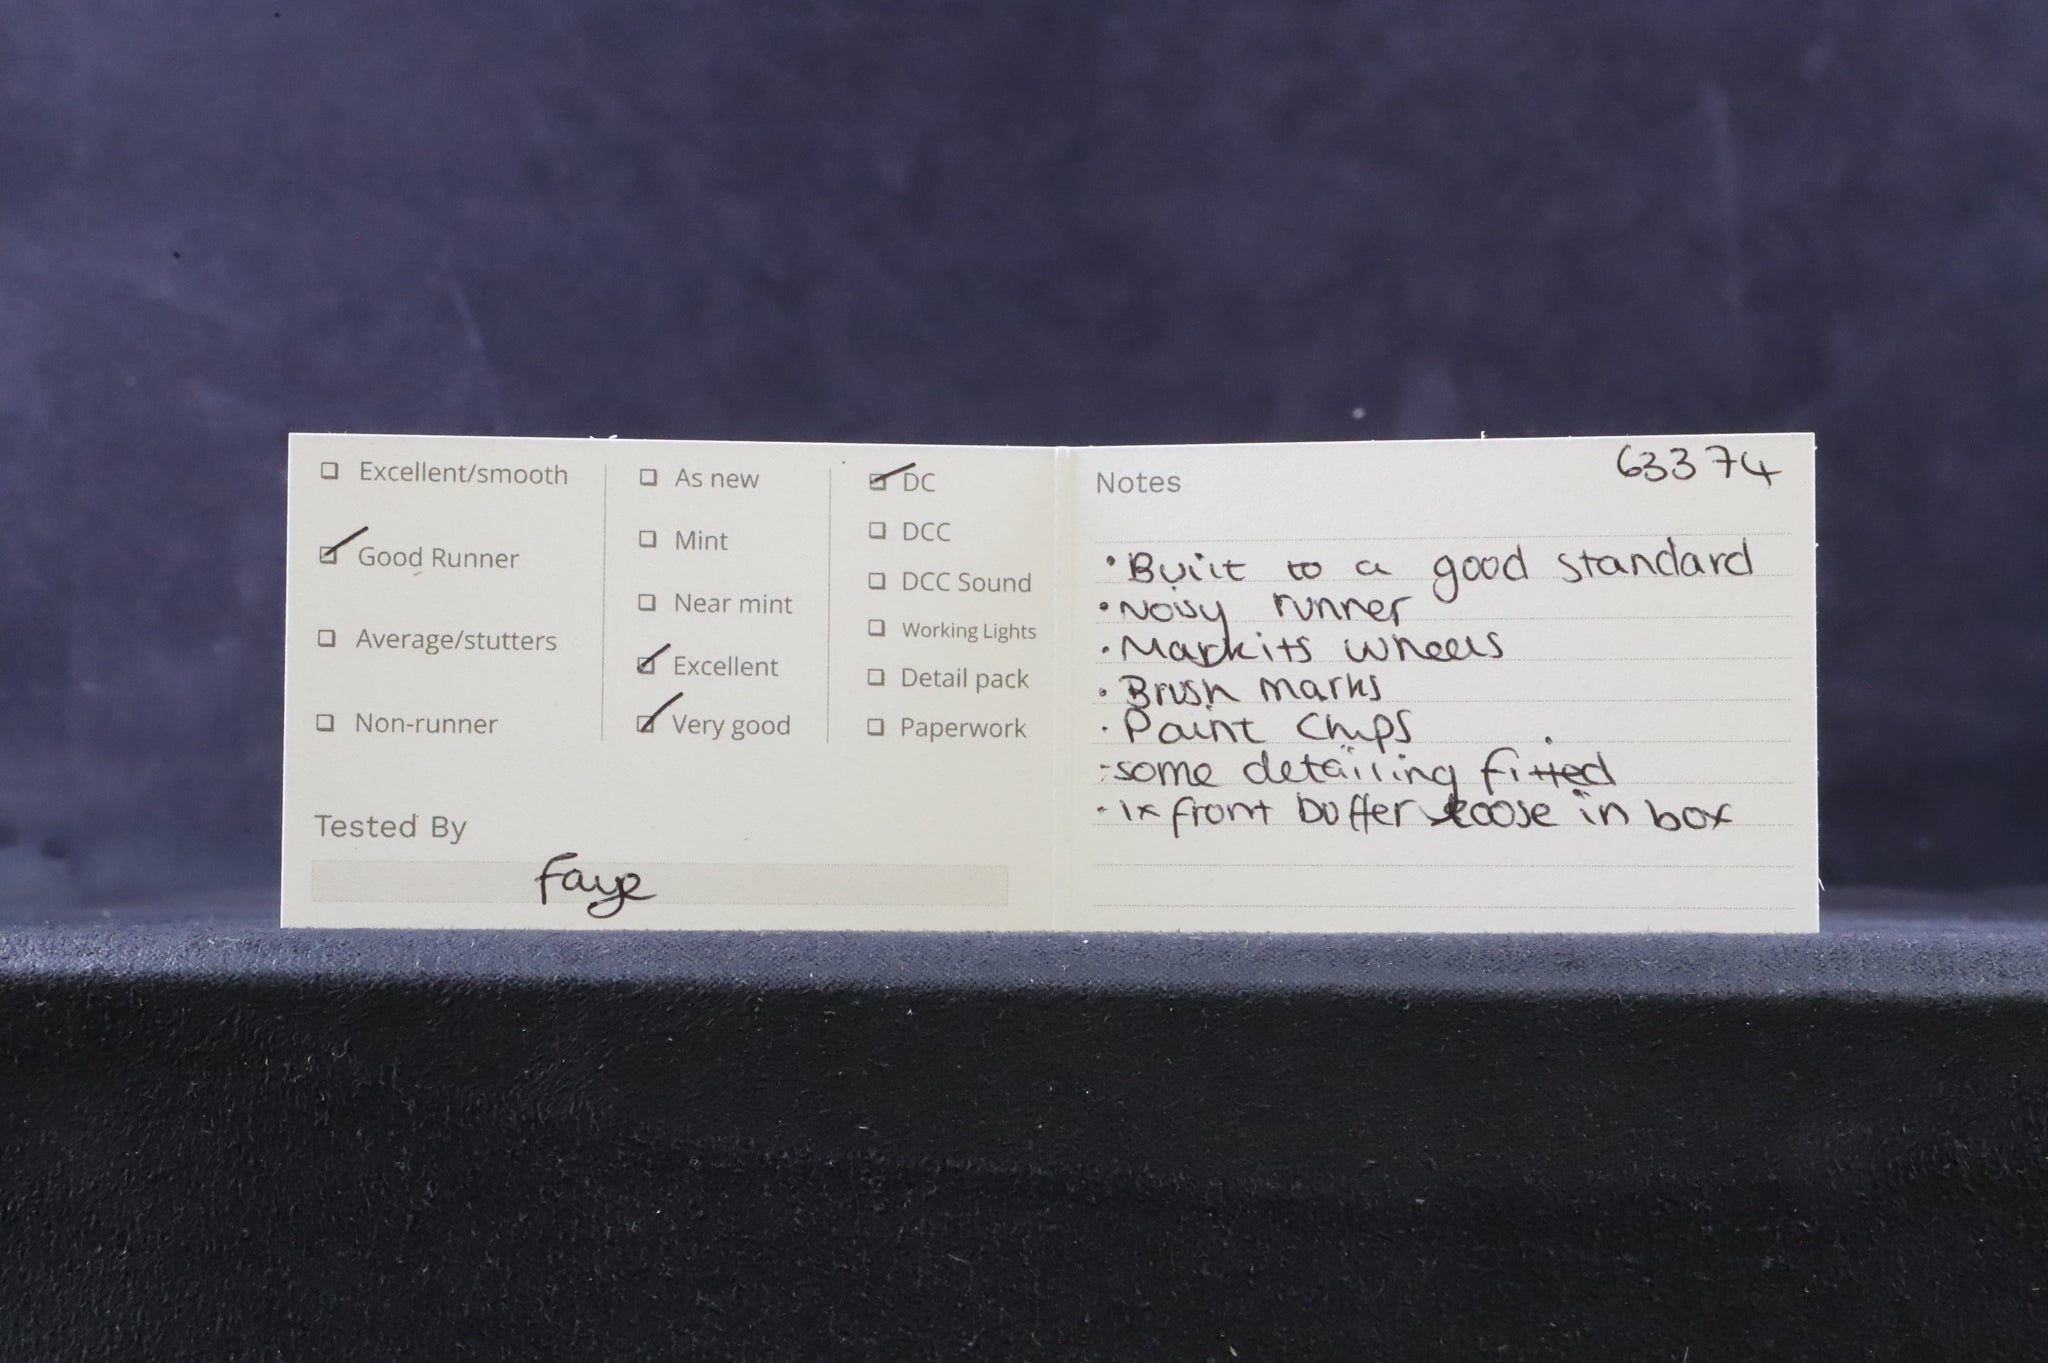 ☐ Excellent/smooth
☑ Good Runner
☐ Average/stutters
☐ Non-runner
☐ As new
☐ Mint
☐ Near mint
☑ Excellent
☑ Very good
☑ DC
☐ DCC
☐ DCC Sound
☐ Working Lights
☐ Detail pack
☐ Paperwork
Tested By
Faye
Notes
63374
• Built to a good standard
• Noisy runner
• Markits wheels
• Brush marks
• Paint chips
• some detailing fitted
• 1x front buffer loose in box